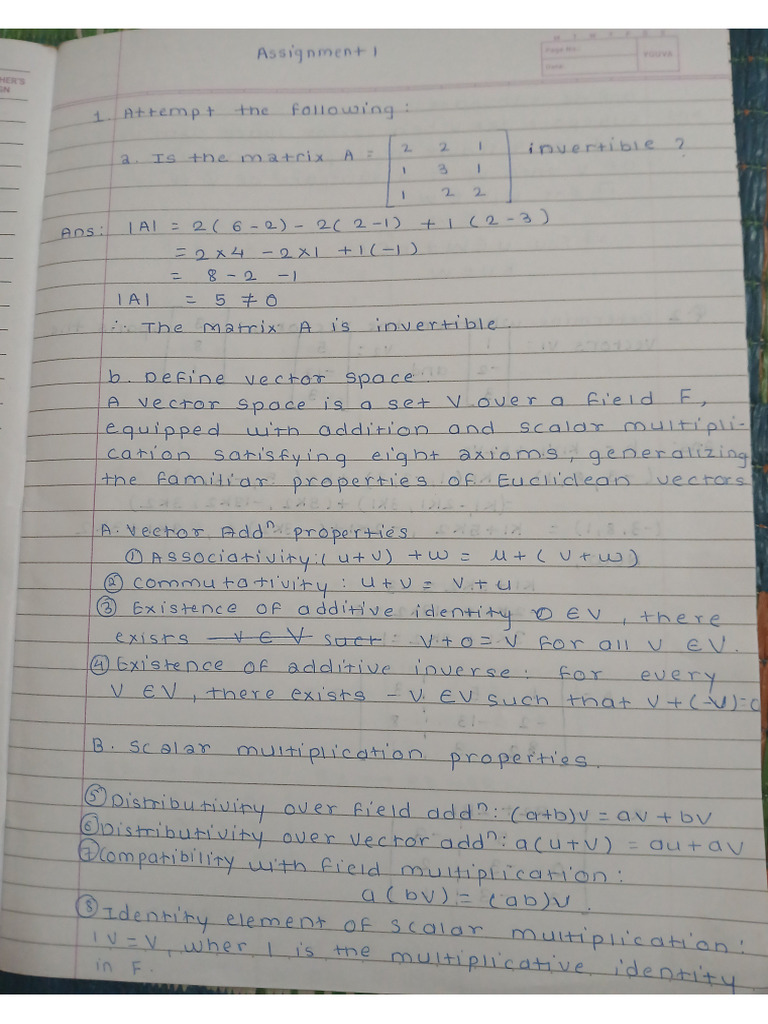 HER'S
GN
Page No.:
Date:
YOUVA
Assignment 1
1. Attempt the following:
a. Is the matrix A = [2 2 1
1 3 1
1 2 2] invertible ?
Ans: |A| = 2(6-2) - 2(2-1) + 1(2-3)
= 2×4 - 2×1 + 1(-1)
= 8-2 -1
|A| = 5 ≠ 0
∴ The matrix A is invertible.
b. Define vector space.
A vector space is a set V over a field F,
equipped with addition and scalar multipli-
cation satisfying eight axioms, generalizing
the familiar properties of Euclidean vectors
A. Vector Addⁿ properties
① Associativity: (u+v) +w = u+(v+w)
② commutativity: u+v = v+u
③ Existence of additive identity 0 ∈V, there
exists v ∈ V such: v+0=v for all v ∈V.
④ Existence of additive inverse: for every
v ∈V, there exists -v ∈V such that v+(-v)=0
B. Scalar multiplication properties.
⑤ Distributivity over field addⁿ: (a+b)v = av + bv
⑥ Distributivity over vector addⁿ: a(u+v) = au+av
⑦ Compatibility with field multiplication:
a(bv) = (ab)v.
⑧ Identity element of scalar multiplication:
1v=v, wher 1 is the multiplicative identity
in F.